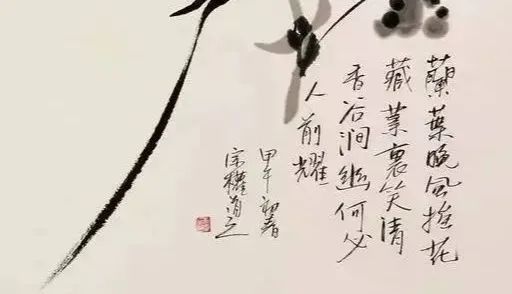 蘭葉晚风拖花
藏葉裏笑清
香谷澗幽何必
人前耀
甲午初春
宗權道之